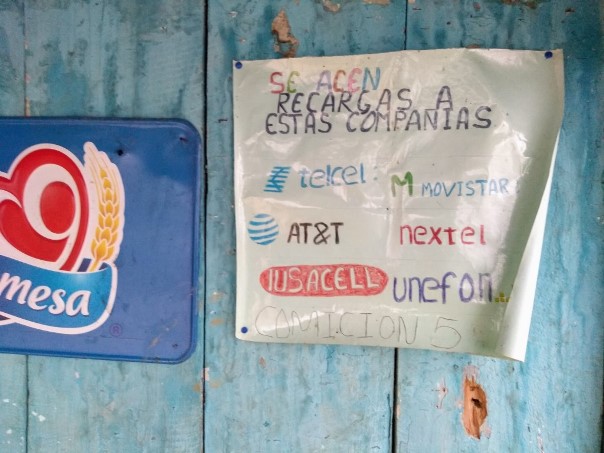 SE ACEN
RECARGAS A
ESTAS COMPANIAS
telcel
M MOVISTAR
AT&T
nextel
IUSACELL
unefon
COMICION 5
mesa